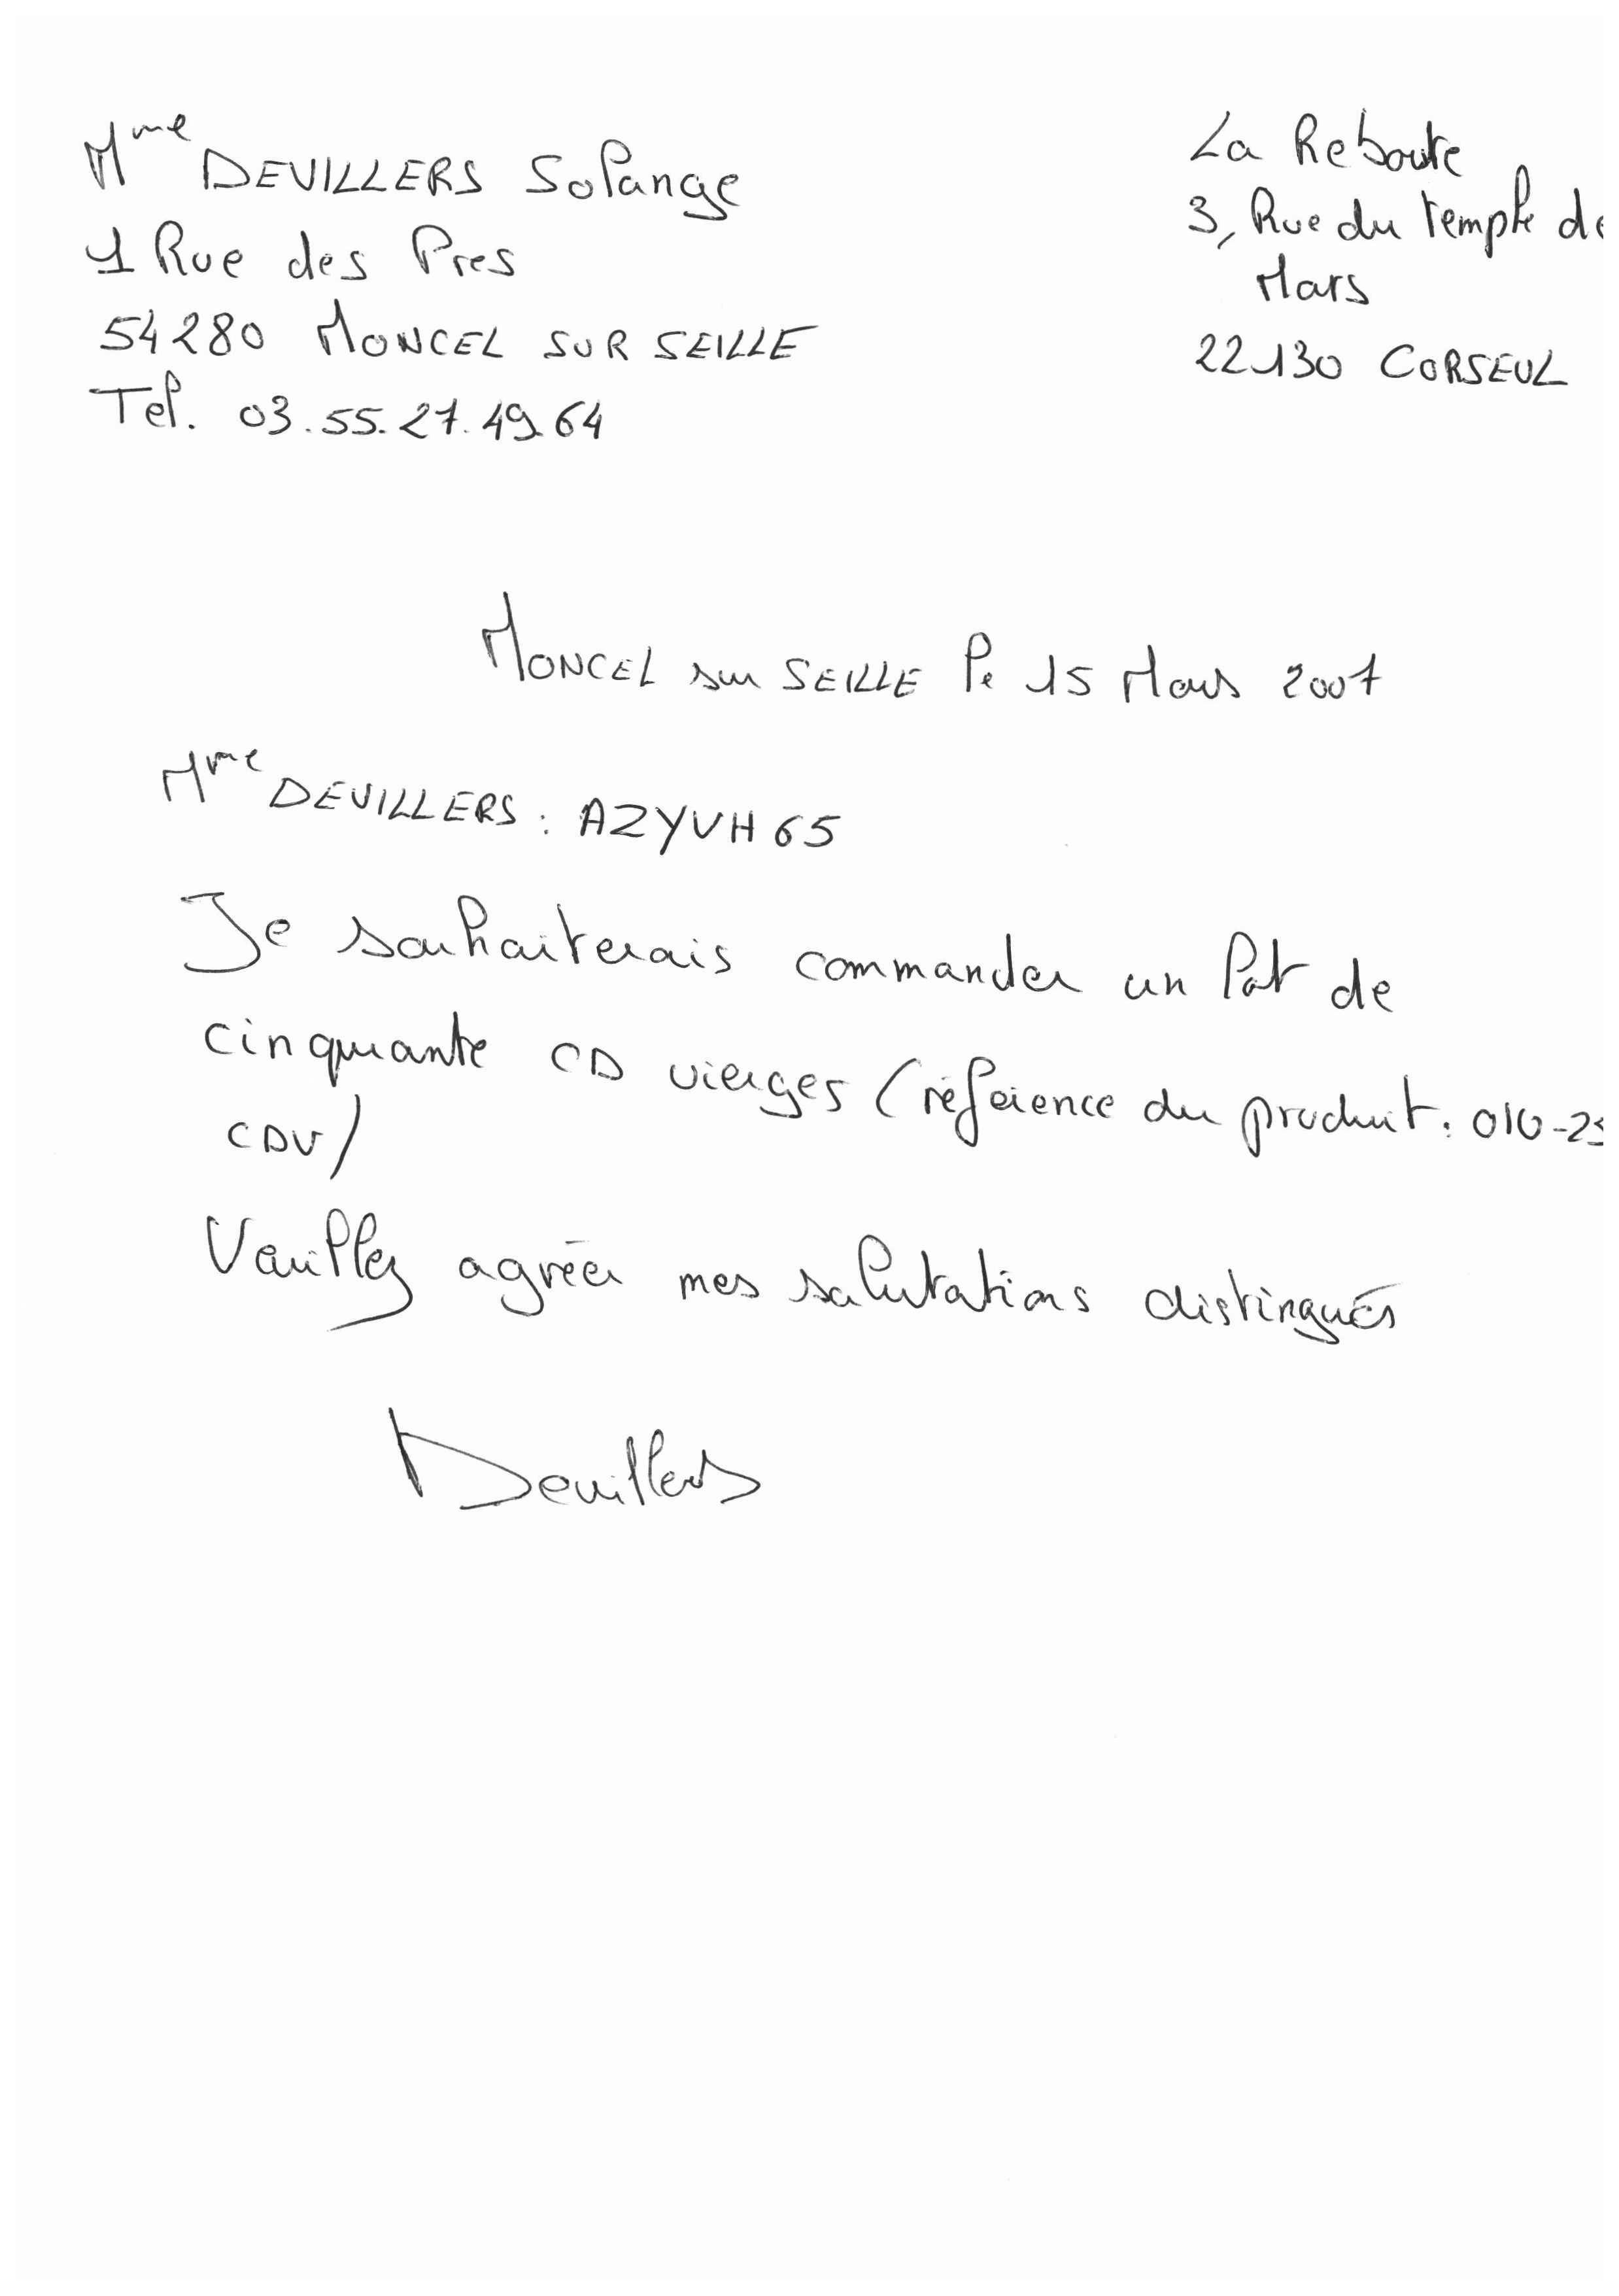 Mme DEVILLERS Solange
1 Rue des Pres
54280 MONCEL SUR SEILLE
Tel. 03.55.27.49.64
La Reboute
3, Rue du temple de
Mars
22130 CORSEUL
MONCEL sur SEILLE le 15 Mars 2007
Mme DEVILLERS : AZYVH65
Je souhaiterais commander un lot de
cinquante CD vierges (référence du produit : 010-25
CDV)
Veuillez agréer mes salutations distingués
Devillers